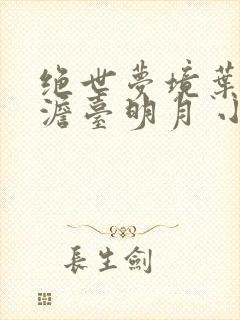 绝世夢境葉
澹臺明月小
長生劍